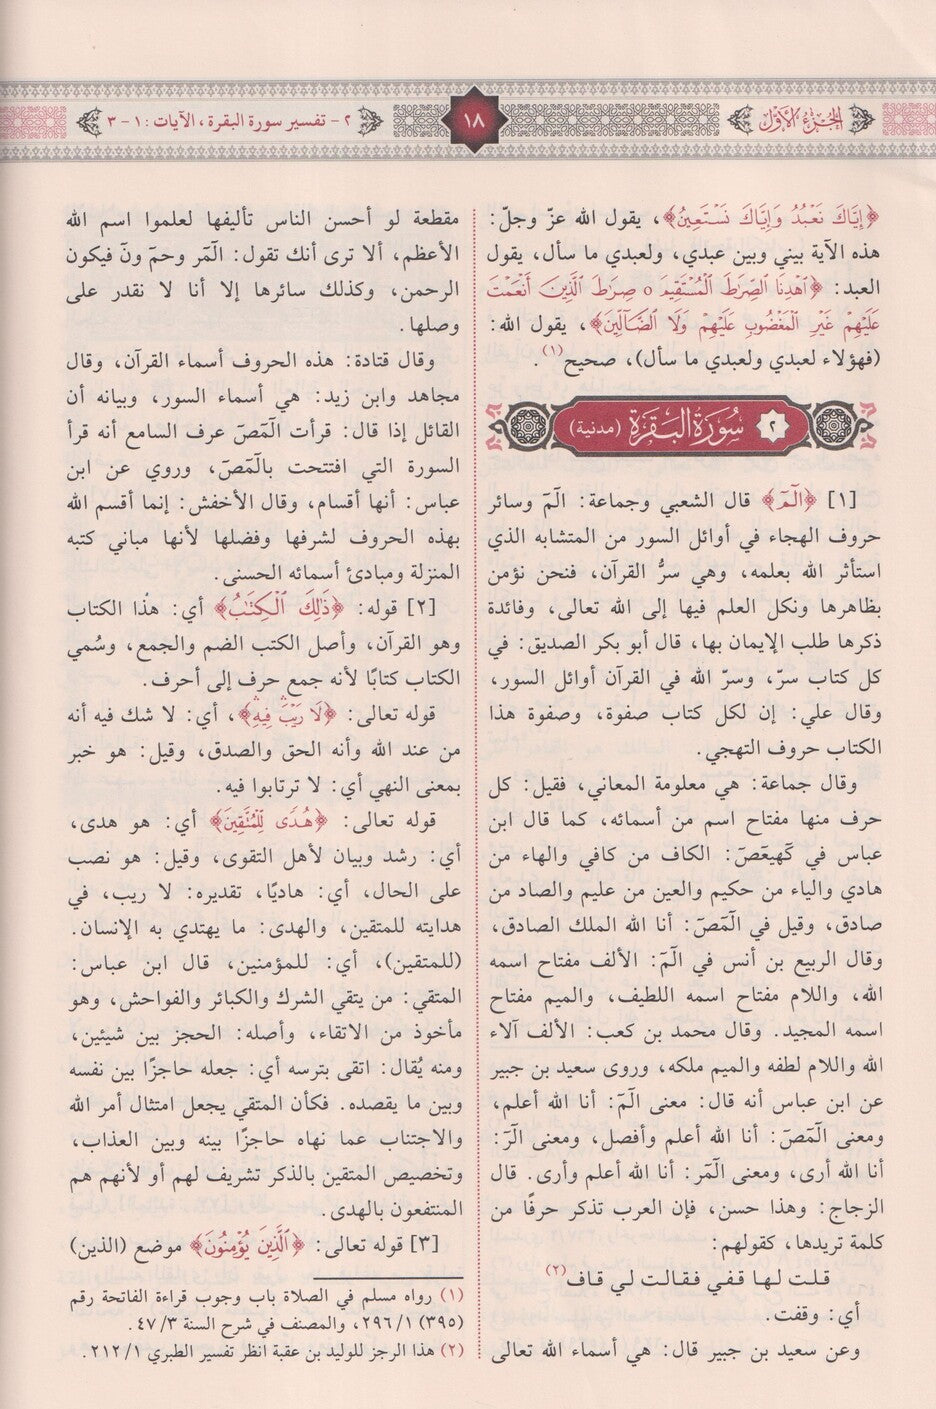 الجزء الأول
١٨
٢- تفسير سورة البقرة، الآيات: ١- ٣
﴿إِيَّاكَ نَعْبُدُ وَإِيَّاكَ نَسْتَعِينُ﴾، يقول الله عزّ وجلّ:
هذه الآية بيني وبين عبدي، ولعبدي ما سأل، يقول
العبد: ﴿اهْدِنَا الصِّرَاطَ الْمُسْتَقِيمَ ٥ صِرَاطَ الَّذِينَ أَنْعَمْتَ
عَلَيْهِمْ غَيْرِ الْمَغْضُوبِ عَلَيْهِمْ وَلَا الضَّالِّينَ﴾، يقول الله:
(فهؤلاء لعبدي ولعبدي ما سأل)، صحيح(١).
٢ سُورَةُ البَقَرَةِ (مدنية)
[١] ﴿الٓمٓ﴾ قال الشعبي وجماعة: الٓمٓ وسائر
حروف الهجاء في أوائل السور من المتشابه الذي
استأثر الله بعلمه، وهي سرُّ القرآن، فنحن نؤمن
بظاهرها ونكل العلم فيها إلى الله تعالى، وفائدة
ذكرها طلب الإيمان بها، قال أبو بكر الصديق: في
كل كتاب سرّ، وسرّ الله في القرآن أوائل السور،
وقال علي: إن لكل كتاب صفوة، وصفوة هذا
الكتاب حروف التهجي.
وقال جماعة: هي معلومة المعاني، فقيل: كل
حرف منها مفتاح اسم من أسمائه، كما قال ابن
عباس في كٓهيعٓصٓ: الكاف من كافي والهاء من
هادي والياء من حكيم والعين من عليم والصاد من
صادق، وقيل في الٓمٓصٓ: أنا الله الملك الصادق،
وقال الربيع بن أنس في الٓمٓ: الألف مفتاح اسمه
الله، واللام مفتاح اسمه اللطيف، والميم مفتاح
اسمه المجيد. وقال محمد بن كعب: الألف آلاء
الله واللام لطفه والميم ملكه، وروى سعيد بن جبير
عن ابن عباس أنه قال: معنى الٓمٓ: أنا الله أعلم،
ومعنى الٓمٓصٓ: أنا الله أعلم وأفصل، ومعنى الٓرٓ:
أنا الله أرى، ومعنى الٓمٓر: أنا الله أعلم وأرى. قال
الزجاج: وهذا حسن، فإن العرب تذكر حرفًا من
كلمة تريدها، كقولهم:
قلت لها قفي فقالت لي قاف(٢)
أي: وقفت.
وعن سعيد بن جبير قال: هي أسماء الله تعالى
مقطعة لو أحسن الناس تأليفها لعلموا اسم الله
الأعظم، ألا ترى أنك تقول: الٓمٓر وحمٓ ونٓ فيكون
الرحمن، وكذلك سائرها إلا أنا لا نقدر على
وصلها.
وقال قتادة: هذه الحروف أسماء القرآن، وقال
مجاهد وابن زيد: هي أسماء السور، وبيانه أن
القائل إذا قال: قرأت الٓمٓصٓ عرف السامع أنه قرأ
السورة التي افتتحت بالٓمٓصٓ، وروي عن ابن
عباس: أنها أقسام، وقال الأخفش: إنما أقسم الله
بهذه الحروف لشرفها وفضلها لأنها مباني كتبه
المنزلة ومبادئ أسمائه الحسنى.
[٢] قوله: ﴿ذَٰلِكَ الْكِتَٰبُ﴾ أي: هذا الكتاب
وهو القرآن، وأصل الكتب الضم والجمع، وسُمي
الكتاب كتابًا لأنه جمع حرف إلى أحرف.
قوله تعالى: ﴿لَا رَيْبَ ۛ فِيهِ ۛ﴾، أي: لا شك فيه أنه
من عند الله وأنه الحق والصدق، وقيل: هو خبر
بمعنى النهي أي: لا ترتابوا فيه.
قوله تعالى: ﴿هُدًى لِّلْمُتَّقِينَ﴾ أي: هو هدى،
أي: رشد وبيان لأهل التقوى، وقيل: هو نصب
على الحال، أي: هاديًا، تقديره: لا ريب، في
هدايته للمتقين، والهدى: ما يهتدي به الإنسان.
(للمتقين)، أي: للمؤمنين، قال ابن عباس:
المتقي: من يتقي الشرك والكبائر والفواحش، وهو
مأخوذ من الاتقاء، وأصله: الحجز بين شيئين،
ومنه يُقال: اتقى بترسه أي: جعله حاجزًا بين نفسه
وبين ما يقصده. فكأن المتقي يجعل امتثال أمر الله
والاجتناب عما نهاه حاجزًا بينه وبين العذاب،
وتخصيص المتقين بالذكر تشريف لهم أو لأنهم هم
المنتفعون بالهدى.
[٣] قوله تعالى: ﴿الَّذِينَ يُؤْمِنُونَ﴾ موضع (الذين)
(١) رواه مسلم في الصلاة باب وجوب قراءة الفاتحة رقم
(٣٩٥) ٢٩٦/١، والمصنف في شرح السنة ٤٧/٣.
(٢) هذا الرجز للوليد بن عقبة انظر تفسير الطبري ٢١٢/١.